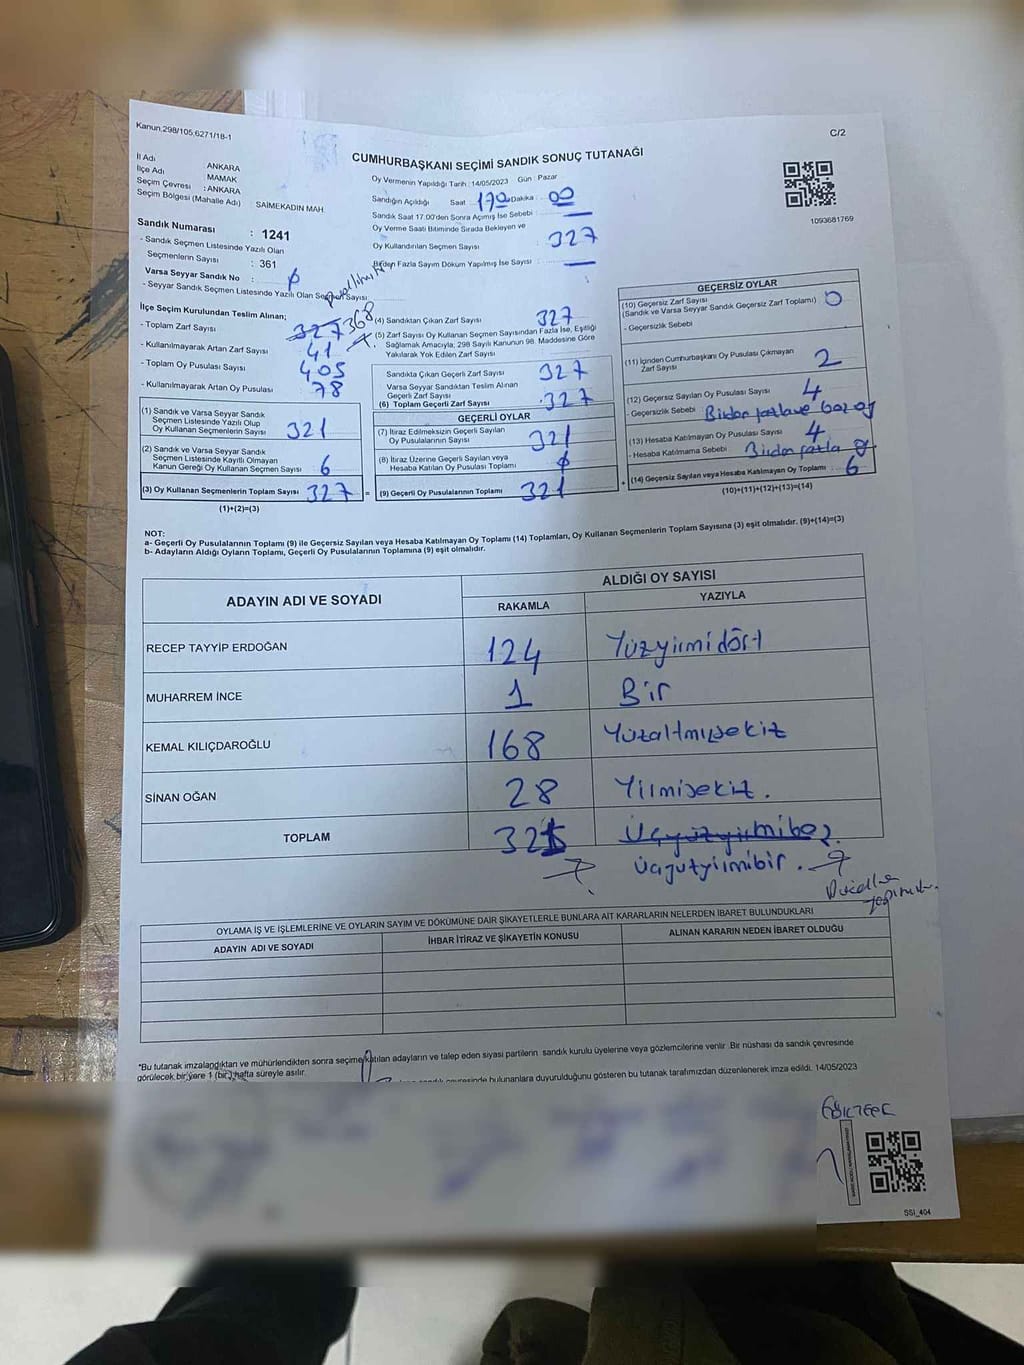 Kanun,298/105,6271/18-1
C/2
CUMHURBAŞKANI SEÇİMİ SANDIK SONUÇ TUTANAĞI
İl Adı : ANKARA
İlçe Adı : MAMAK
Seçim Çevresi : ANKARA
Seçim Bölgesi (Mahalle Adı) : SAİMEKADIN MAH
Sandık Numarası : 1241
- Sandık Seçmen Listesinde Yazılı Olan
Seçmenlerin Sayısı : 361
Varsa Seyyar Sandık No :
- Seyyar Sandık Seçmen Listesinde Yazılı Olan Seçmen Sayısı:
Oy Vermenin Yapıldığı Tarih : 14/05/2023 Gün : Pazar
Sandığın Açıldığı Saat : 17 00 Dakika : 00
Sandık Saat 17.00'den Sonra Açımış İse Sebebi :
Oy Verme Saati Bitiminde Sırada Bekleyen ve
Oy Kullandırılan Seçmen Sayısı : 327
Birden Fazla Sayım Döküm Yapılmış İse Sayısı :
1093681769
İlçe Seçim Kurulundan Teslim Alınan;
- Toplam Zarf Sayısı 327 368
- Kullanılmayarak Artan Zarf Sayısı 41
- Toplam Oy Pusulası Sayısı 405
- Kullanılmayarak Artan Oy Pusulası 78
(1) Sandık ve Varsa Seyyar Sandık
Seçmen Listesinde Yazılı Olup
Oy Kullanan Seçmenlerin Sayısı 321
(2) Sandık ve Varsa Seyyar Sandık
Seçmen Listesinde Kayıtlı Olmayan
Kanun Gereği Oy Kullanan Seçmen Sayısı 6
(3) Oy Kullanan Seçmenlerin Toplam Sayısı 327 =
(1)+(2)=(3)
(4) Sandıktan Çıkan Zarf Sayısı 327
(5) Zarf Sayısı Oy Kullanan Seçmen Sayısından Fazla İse, Eşitliği
Sağlamak Amacıyla, 298 Sayılı Kanunun 98. Maddesine Göre
Yakılarak Yok Edilen Zarf Sayısı
Sandıkta Çıkan Geçerli Zarf Sayısı 327
Varsa Seyyar Sandıktan Teslim Alınan
Geçerli Zarf Sayısı
(6) Toplam Geçerli Zarf Sayısı 327
GEÇERLİ OYLAR
(7) İtiraz Edilmeksizin Geçerli Sayılan
Oy Pusulalarının Sayısı 321
(8) İtiraz Üzerine Geçerli Sayılan veya
Hesaba Katılan Oy Pusulası Toplamı
(9) Geçerli Oy Pusulalarının Toplamı 321 +
GEÇERSİZ OYLAR
(10) Geçersiz Zarf Sayısı
(Sandık ve Varsa Seyyar Sandık Geçersiz Zarf Toplamı) 0
- Geçersizlik Sebebi
(11) İçinden Cumhurbaşkanı Oy Pusulası Çıkmayan
Zarf Sayısı 2
(12) Geçersiz Sayılan Oy Pusulası Sayısı 4
- Geçersizlik Sebebi Birden fazla ve boz oy
(13) Hesaba Katılmayan Oy Pusulası Sayısı 4
- Hesaba Katılmama Sebebi Birden fazla oy
(14) Geçersiz Sayılan veya Hesaba Katılmayan Oy Toplamı 6
(10)+(11)+(12)+(13)=(14)
NOT:
a- Geçerli Oy Pusulaları Toplamı (9) ile Geçersiz Sayılan veya Hesaba Katılmayan Oy Toplamı (14) Toplamları, Oy Kullanan Seçmenlerin Toplam Sayısına (3) eşit olmalıdır. (9)+(14)=(3)
b- Adayların Aldığı Oyların Toplamı, Geçerli Oy Pusulalarının Toplamına (9) eşit olmalıdır.
ADAYIN ADI VE SOYADI ALDIĞI OY SAYISI
RAKAMLA YAZIYLA
RECEP TAYYİP ERDOĞAN 124 Yüzyirmidört
MUHARREM İNCE 1 Bir
KEMAL KILIÇDAROĞLU 168 Yüzaltmışsekiz
SİNAN OĞAN 28 Yirmisekiz.
TOPLAM 321 Üçyüzyirmibeş
Üçyüzyirmibir.
OYLAMA İŞ VE İŞLEMLERİNE VE OYLARIN SAYIM VE DÖKÜMÜNE DAİR ŞİKAYETLERLE BUNLARA AİT KARARLARIN NELERDEN İBARET BULUNDUKLARI
ADAYIN ADI VE SOYADI İHBAR İTİRAZ VE ŞİKAYETİN KONUSU ALINAN KARARIN NEDEN İBARET OLDUĞU
*Bu tutanak imzalandıktan ve mühürlendikten sonra seçime katılan adayların ve talep eden siyasi partilerin sandık kurulu üyelerine veya gözlemcilerine verilir. Bir nüshası da sandık çevresinde
görülecek bir yere 1 (bir) hafta süreyle asılır.
bulunanlara duyurulduğunu gösteren bu tutanak tarafımızdan düzenlenerek imza edildi. 14/05/2023
SSI_404